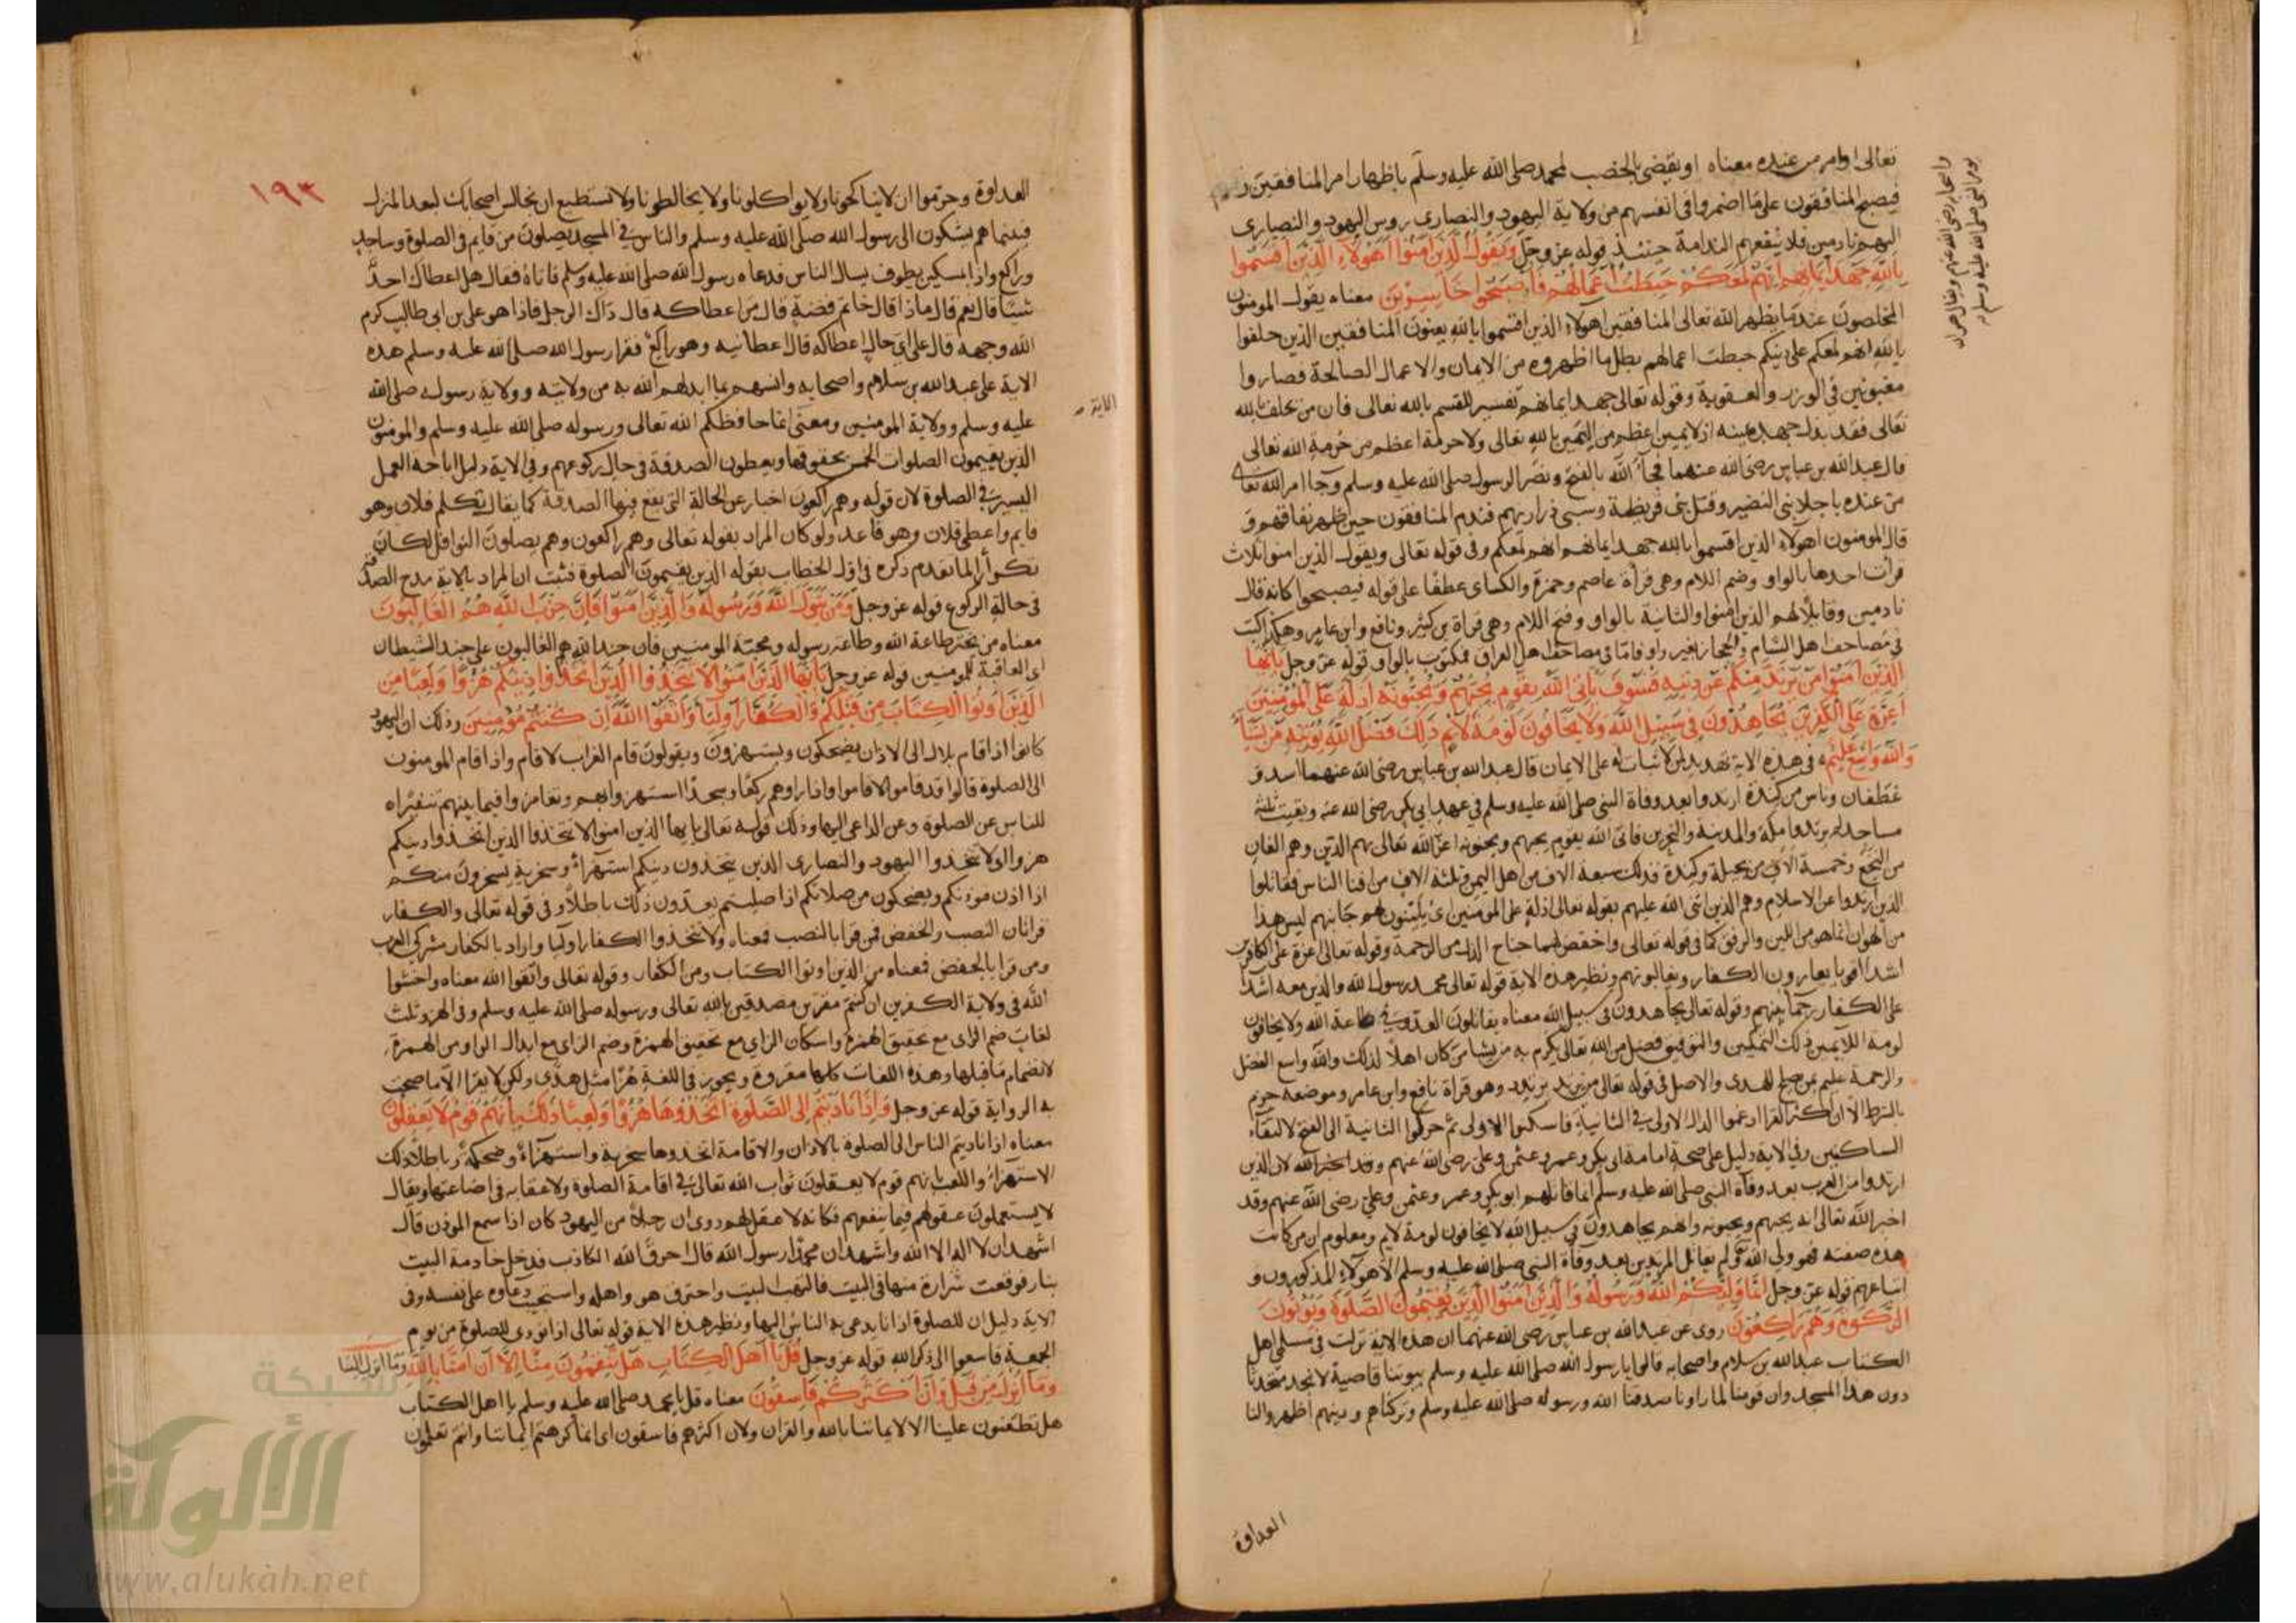 تعالى او امر من عنده معناه او يقضى بالخصب لمحمد صلى الله عليه وسلم باظهار امر المنافقين
فيصبح المنافقون على ما اضمروا فى انفسهم من ولاية اليهود والنصارى ودس اليهود والنصارى
اليهم نادمين فلا ينفعهم الندامة حينئذ قوله عز وجل ويقول الذين امنوا اهؤلآء الذين اقسموا
بالله جهد ايمانهم انهم لمعكم حبطت اعمالهم فاصبحوا خاسرين معناه يقول المومنون
المخلصون عندما يظهر الله تعالى المنافقين اهولاء الذين اقسموا بالله يعنون المنافقين الذين حلفوا
بالله انهم لمعكم على دينكم حبطت اعمالهم بطل ما اظهروه من الايمان والاعمال الصالحة فصاروا
مغبونين فى الوزر والعقوبة وقوله تعالى جهد ايمانهم تفسير للقسم بالله تعالى فان من يحلف بالله
تعالى فقد بذل جهد يمينه اذ لا يمين اعظم من اليمين بالله تعالى ولا حرمة اعظم من حرمة الله تعالى
قال عبد الله بن عباس رضى الله عنهما فجآء الله بالفتح ونصر الرسول صلى الله عليه وسلم وجآ امر الله تعالى
من عنده باجلا بنى النضير وقتل بنى قريظة وسبى ذراريهم فندم المنافقون حين ظهر نفاقهم و
قال المومنون اهولاء الذين اقسموا بالله جهد ايمانهم انهم لمعكم وفى قوله تعالى ويقول الذين امنوا ثلاث
قرات احدها بالواو وضم اللام وهى قرأة عاصم وحمزة والكساى عطفا على قوله فيصبحوا كانه قال
نادمين وقايلا لهم الذين امنوا والثانية بالواو وفتح اللام وهى قراة بن كثير ونافع وابن عامر وهكذا كتبت
فى مصاحف اهل الشام والحجاز بغير واو فاما فى مصاحف اهل العراق فمكتوب بالواو قوله عز وجل يايها
الذين امنوا من يرتد منكم عن دينه فسوف ياتى الله بقوم يحبهم ويحبونه اذلة على المؤمنين
اعزة على الكفرين يجاهدون فى سبيل الله ولا يخافون لومة لايم ذلك فضل الله يؤتيه من يشآء
والله واسع عليم فى هذه الاية تهديد لمن لا ثبات له على الايمان قال عبد الله بن عباس رضى الله عنهما اسد و
غطفان وناس من كندة ارتدوا بعد وفاة النبى صلى الله عليه وسلم فى عهد ابى بكر رضى الله عنه وبقيت ثلثة
مساجد لم يرتدوا مكة والمدينة والبحرين فاتى الله بقوم يحبهم ويحبونه اعز الله تعالى بهم الدين وهم الفان
من النخع وخمسة الاف من بجيلة وكندة فذلك سبعة الاف من اهل اليمن وثلثة الاف من افنا الناس فقاتلوا
الذين ارتدوا عن الاسلام وهم الذين اثنى الله عليهم بقوله تعالى اذلة على المومنين اى يلينون لهم جانبهم ليس هذا
من الهوان انما هو من اللين والرفق كما فى قوله تعالى واخفض لهما جناح الذل من الرحمة وقوله تعالى اعزة على الكافرين
اشدا اقويا يعازون الكفار ويغالبونهم ونظير هذه الاية قوله تعالى محمد رسول الله والذين معه اشدا
على الكفار رحمآ بينهم وقوله تعالى يجاهدون فى سبيل الله معناه يقاتلون العدو فى طاعة الله ولا يخافون
لومة اللايمين ذلك التمكين والتوفيق فضل من الله تعالى يكرم به من يشا من كان اهلا لذلك والله واسع الفضل
والرحمة عليم بمن يصلح للهدى والاصل فى قوله تعالى من يرتد يرتدد وهو قراة نافع وابن عامر وموضعه جزم
بالشرط الا ان اكثر القرا ادغموا الدال الاولى فى الثانية فاسكنوا الاولى ثم حركوا الثانية الى الفتح لالتقآء
الساكنين وفى الاية دليل على صحة امامة ابى بكر وعمر وعثمن وعلى رضى الله عنهم وقد اخبر الله لان الذين
ارتدوا من العرب بعد وفاة النبى صلى الله عليه وسلم انما قاتلهم ابو بكر وعمر وعثمن وعلى رضى الله عنهم وقد
اخبر الله تعالى انه يحبهم ويحبونه وانهم يجاهدون فى سبيل الله لا يخافون لومة لايم ومعلوم ان من كانت
هذه صفته فهو ولى الله ولم يقاتل المرتدين بعد وفاة النبى صلى الله عليه وسلم الا هولآء المذكورون و
اتباعهم قوله عز وجل انما وليكم الله ورسوله والذين امنوا الذين يقيمون الصلوة ويؤتون
الزكوة وهم راكعون روى عن عبد الله بن عباس رضى الله عنهما ان هذه الاية نزلت فى مسلمى اهل
الكتاب عبد الله بن سلام واصحابه قالوا يا رسول الله صلى الله عليه وسلم بيوتنا قاصية لا نجد متحدثا
دون هذا المسجد وان قومنا لما راونا صدقنا الله ورسوله صلى الله عليه وسلم وتركناهم ودينهم اظهروا لنا
العداوة
واصحابه رضى الله عنهم ويقال هو ان
يوم النبى صلى الله عليه وسلم
١٩٣
العداوة وحرموا ان لا يناكحونا ولا يواكلونا ولا يخالطونا ولا نستطيع ان نجالس اصحابك لبعد المنزل
فبينما هم يشكون الى رسول الله صلى الله عليه وسلم والناس فى المسجد يصلون من قايم فى الصلوة وساجد
وراكع واذا بمسكين يطوف يسال الناس فدعاه رسول الله صلى الله عليه وسلم فاتاه فقال هل اعطاك احد
شيئا قال نعم قال ماذا قال خاتم فضة قال من اعطاكه قال ذاك الرجل فاذا هو على بن ابى طالب كرم
الله وجهه قال على اى حال اعطاكه قال اعطانيه وهو راكع فقرا رسول الله صلى الله عليه وسلم هذه
الاية على عبد الله بن سلام واصحابه وانسهم بما ابدلهم الله به من ولايته وولاية رسوله صلى الله
عليه وسلم وولاية المومنين ومعنى انما حافظكم الله تعالى ورسوله صلى الله عليه وسلم والمومنون
الاية
الذين يقيمون الصلوات الخمس بحقوقها ويعطون الصدقة فى حال ركوعهم وفى الاية دليل اباحه العمل
اليسير فى الصلوة لان قوله وهم راكعون اخبار عن الحالة التى يقع فيها الصدقة كما يقال تكلم فلان وهو
قايم واعطى فلان وهو قاعد ولو كان المراد بقوله تعالى وهم راكعون وهم يصلون النوافل لكان
تكرارا لما تقدم ذكره فى اول الخطاب بقوله الذين يقيمون الصلوة فثبت ان المراد بالاية مدح الصدقة
فى حالة الركوع قوله عز وجل ومن يتول الله ورسوله والذين امنوا فان حزب الله هم الغالبون
معناه من يختر طاعة الله وطاعة رسوله ومحبته المومنين فان جند الله هم الغالبون على جند الشيطان
اى العاقبة للمومنين قوله عز وجل يايها الذين امنوا لا تتخذوا الذين اتخذوا دينكم هزوا ولعبا من
الذين اوتوا الكتاب من قبلكم والكفار اوليآ واتقوا الله ان كنتم مؤمنين وذلك ان اليهود
كانوا اذا قام بلال الى الاذان يضحكون ويستهزون ويقولون قام الغراب لا قام واذا قام المومنون
الى الصلوة قالوا قد قاموا لا قاموا واذا راوهم ركعا وسجدا استهزوا بهم وتغامزوا فيما بينهم تنفيرا
للناس عن الصلوة وعن الداعى اليها وذلك قوله تعالى يايها الذين امنوا لا تتخذوا الذين اتخذوا دينكم
هزوا اى لا تتخذوا اليهود والنصارى الذين يتخذون دينكم استهزاء وسخرية يسخرون منكم
اذا اذن موذنكم ويضحكون من صلاتكم اذا صليتم يعدون ذلك باطلا وفى قوله تعالى والكفار
قراتان النصب والخفض فمن قرا بالنصب فمعناه ولا تتخذوا الكفار اوليا واراد بالكفار مشركى العرب
ومن قرا بالخفض فمعناه من الذين اوتوا الكتاب ومن الكفار وقوله تعالى واتقوا الله معناه واخشوا
الله فى ولاية الكفرين ان كنتم مقرين مصدقين بالله تعالى ورسوله صلى الله عليه وسلم وفى الهزو ثلث
لغات ضم الزاى مع تحقيق الهمزة واسكان الزاى مع تحقيق الهمزة وضم الزاى مع ابدال الواو من الهمزة
لانضمام ما قبلها وهذه اللغات كلها مقروة ويجوز فى اللغة هزا مثل هدى ولكن لا يقرا الا ما صحت
به الرواية قوله عز وجل واذا ناديتم الى الصلوة اتخذوها هزوا ولعبا ذلك بانهم قوم لا يعقلون
معناه اذا ناديتم الناس الى الصلوة بالاذان والاقامة اتخذوها سخرية واستهزاء وضحكة وباطلا ذلك
الاستهزاء واللعب بانهم قوم لا يعقلون ثواب الله تعالى فى اقامة الصلوة ولا عقابه فى اضاعتها ويقال
لا يستعملون عقولهم فيما ينفعهم فكانه لا عقل لهم روى ان رجلا من اليهود كان اذا سمع الموذن قال
اشهد ان لا اله الا الله واشهد ان محمدا رسول الله قال احرق الله الكاذب فدخل خادمة البيت
بنار فوقعت شرارة منها فى البيت فالتهب البيت واحترق هو واهله واستجيب دعاوه على نفسه وفى
الاية دليل ان للصلوة اذانا يدعى به الناس اليها ونظير هذه الاية قوله تعالى اذا نودى للصلوة من يوم
الجمعة فاسعوا الى ذكر الله قوله عز وجل قل يا اهل الكتاب هل تنقمون منا الا ان امنا بالله وما انزل الينا
وما انزل من قبل وان اكثركم فاسقون معناه قل يا محمد صلى الله عليه وسلم يا اهل الكتاب
هل تطعنون علينا الا لايماننا بالله والقران ولان اكثرهم فاسقون اى انما كرهتم ايماننا وانتم تعلمون
شبكة
الألوكة
www.alukah.net